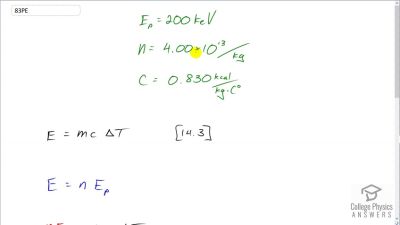 83PE
E_p = 200 keV
n = 4.00 × 10^13 /kg
C = 0.830 kcal/kg·C°
E = mc ΔT [14.3]
E = n E_p
College Physics
ANSWERS